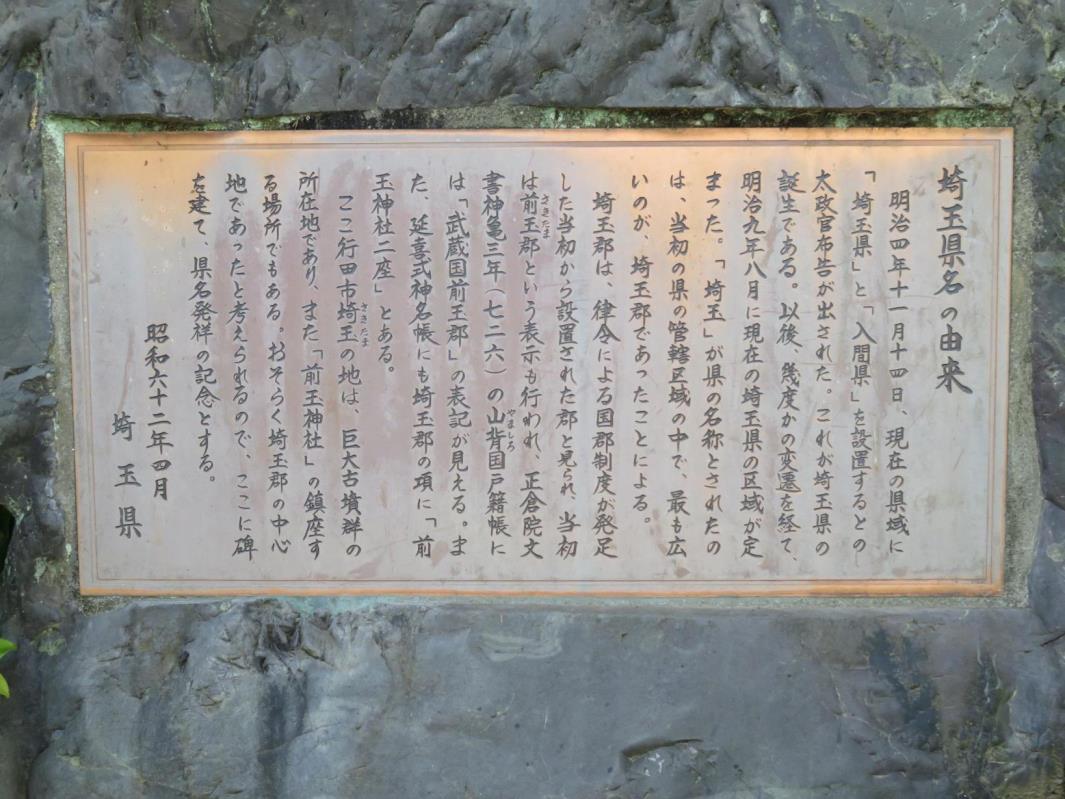 埼玉県名の由来
明治四年十一月十四日、現在の県域に
「埼玉県」と「入間県」を設置するとの
太政官布告が出された。これが埼玉県の
誕生である。以後、幾度かの変遷を経て、
明治九年八月に現在の埼玉県の区域が定
まった。「埼玉」が県の名称とされたの
は、当初の県の管轄区域の中で、最も広
いのが、埼玉郡であったことによる。
埼玉郡は、律令による国郡制度が発足
した当初から設置された郡と見られ、当初
は前玉郡という表示も行われ、正倉院文
書神亀三年(七二六)の山背国戸籍帳に
は「武蔵国前玉郡」の表記が見える。ま
た、延喜式神名帳にも埼玉郡の項に「前
玉神社二座」とある。
ここ行田市埼玉の地は、巨大古墳群の
所在地であり、また「前玉神社」の鎮座す
る場所でもある。おそらく埼玉郡の中心
地であったと考えられるので、ここに碑
を建て、県名発祥の記念とする。
昭和六十二年四月
埼玉県